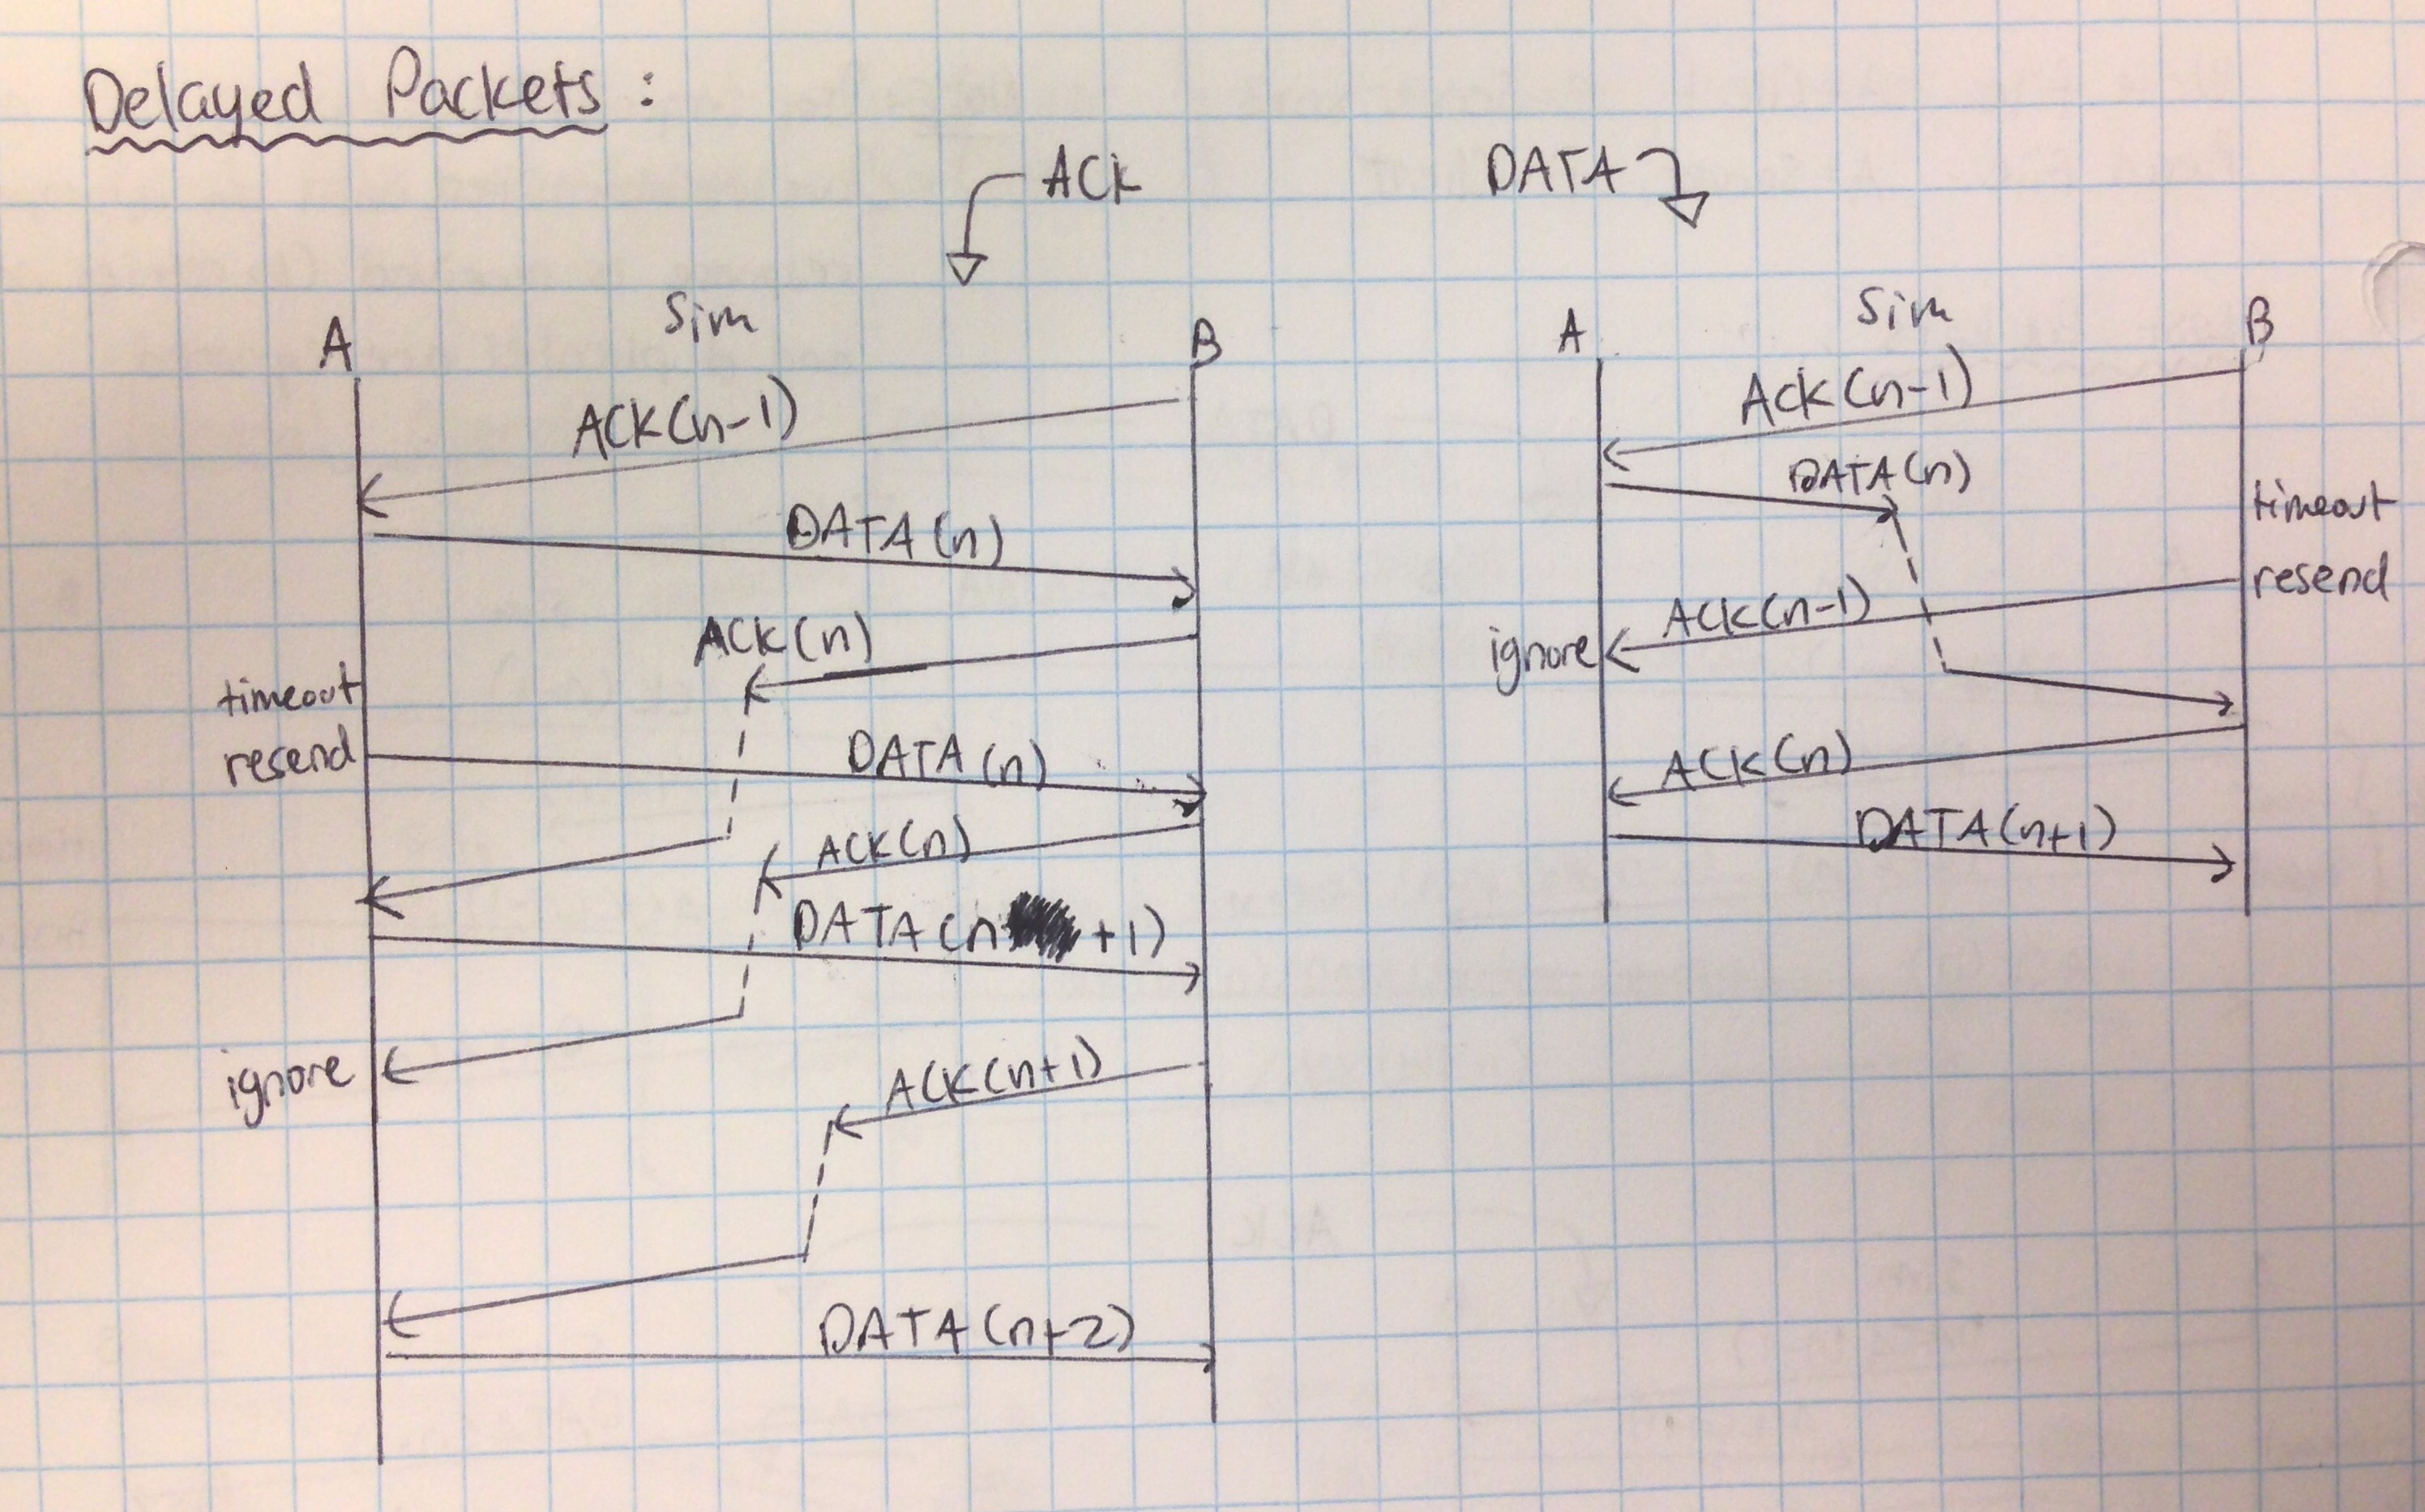 Delayed Packets :
ACK
DATA
A
Sim
B
ACK(n-1)
DATA(n)
ACK(n)
timeout
resend
DATA(n)
ACK(n)
DATA(n +1)
ignore
ACK(n+1)
DATA(n+2)
A
Sim
B
ACK(n-1)
DATA(n)
timeout
resend
ACK(n-1)
ignore
ACK(n)
DATA(n+1)